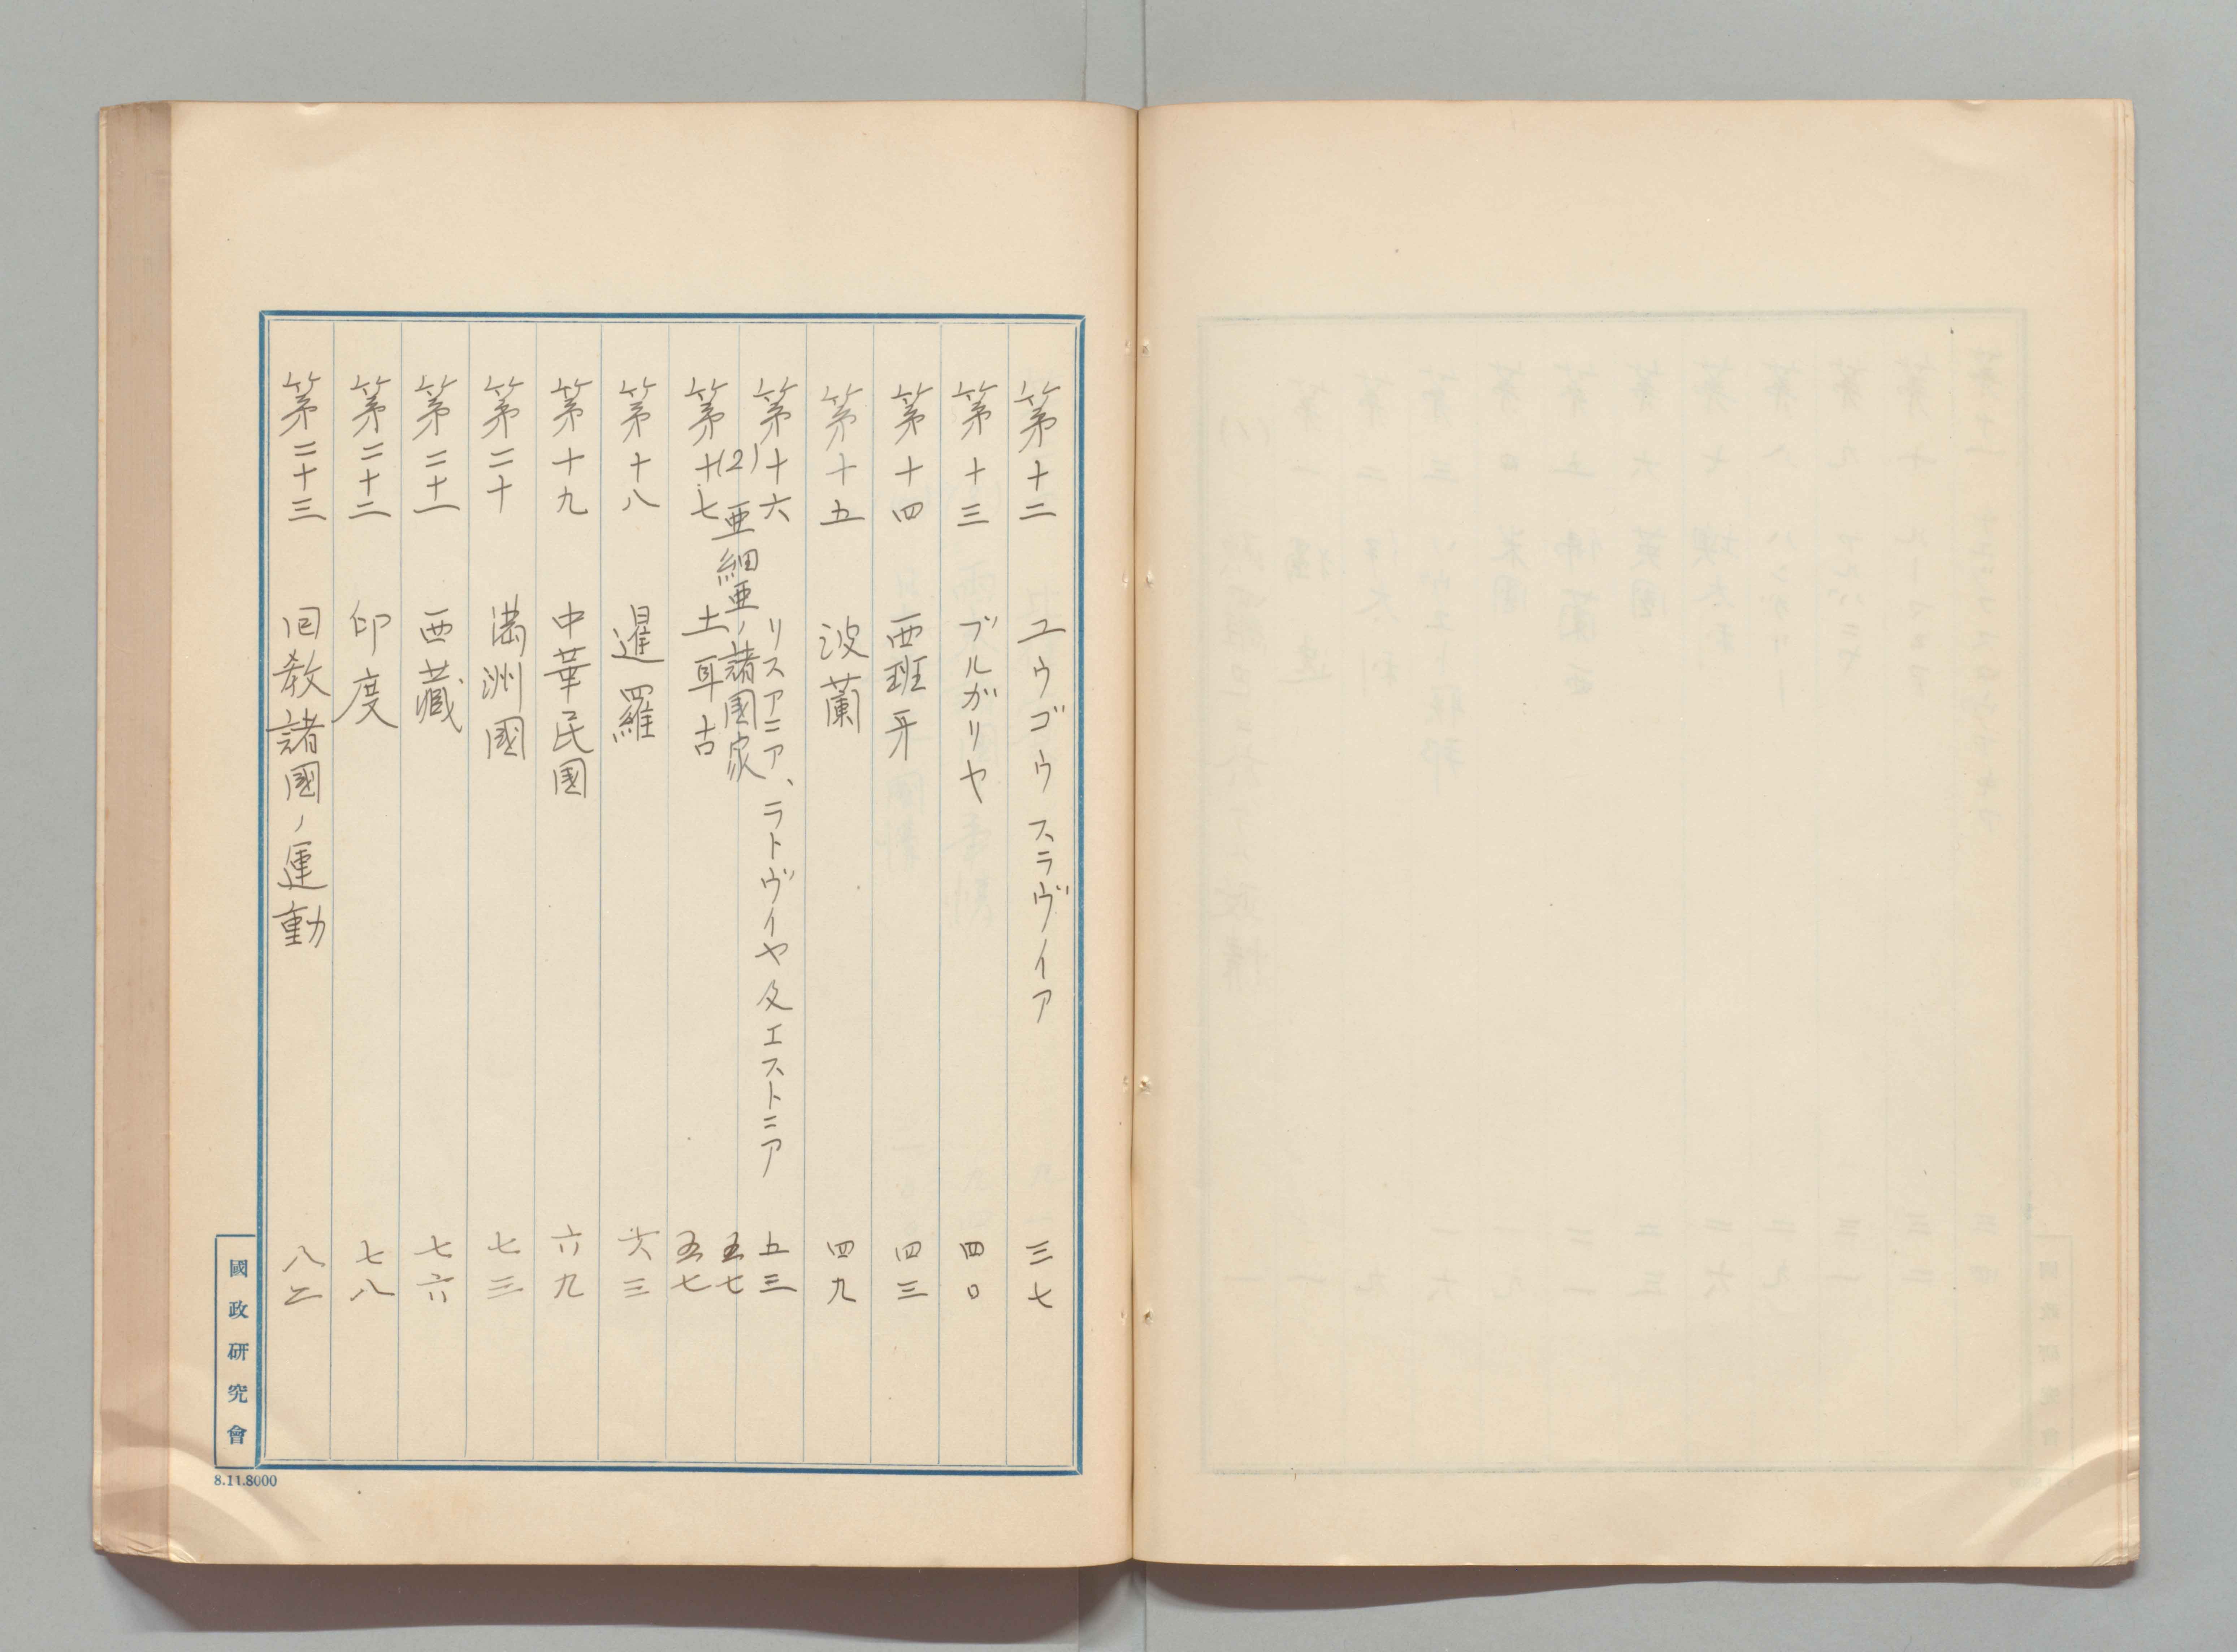 第十二 ユウゴウスラヴイア 三七
第十三 ブルガリヤ 四〇
第十四 西班牙 四三
第十五 波蘭 四九
第十六 リスアニア、ラトヴイヤ及エストニア 五三
(2) 亜細亜ノ諸國家 五七
第十七 土耳古 五七
第十八 暹羅 六三
第十九 中華民國 六九
第二十 満洲國 七三
第二十一 西藏 七六
第二十二 印度 七八
第二十三 回教諸國ノ運動 八二
國政研究會
8.11.8000